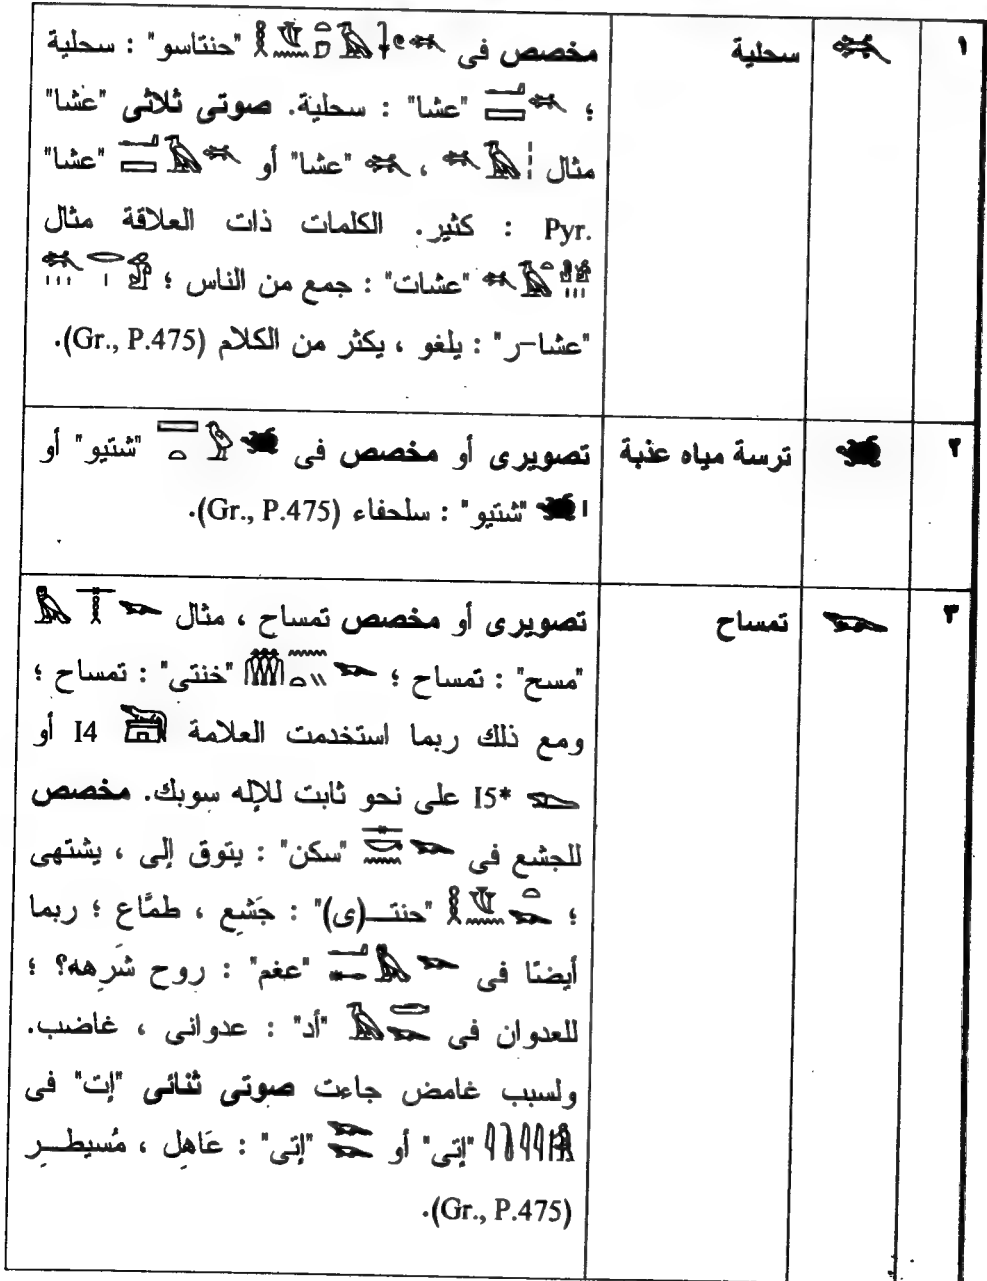 ١ سحلية مخصص فى "حنتاسو" : سحلية
؛ "عشا" : سحلية. صوتى ثلاثى "عشا"
مثال ، "عشا" أو "عشا"
Pyr. : كثير. الكلمات ذات العلاقة مثال
"عشات" : جمع من الناس ؛
"عشا-ر" : يلغو ، يكثر من الكلام (Gr., P.475).
٢ ترسة مياه عذبة تصويرى أو مخصص فى "شتيو" أو
"شتيو" : سلحفاء (Gr., P.475).
٣ تمساح تصويرى أو مخصص تمساح ، مثال
"مسح" : تمساح ؛ "خنتى" : تمساح ؛
ومع ذلك ربما استخدمت العلامة I4 أو
I5* على نحو ثابت للإله سوبك. مخصص
للجشع فى "سكن" : يتوق إلى ، يشتهى
؛ "حنتـــ(ى)" : جَشِع ، طمَّاع ؛ ربما
أيضًا فى "عغم" : روح شَرِهه؟ ؛
للعدوان فى "أد" : عدوانى ، غاضب.
ولسبب غامض جاءت صوتى ثنائى "إت" فى
"إتى" أو "إتى" : عَاهِل ، مُسيطـــرِ
(Gr., P.475).